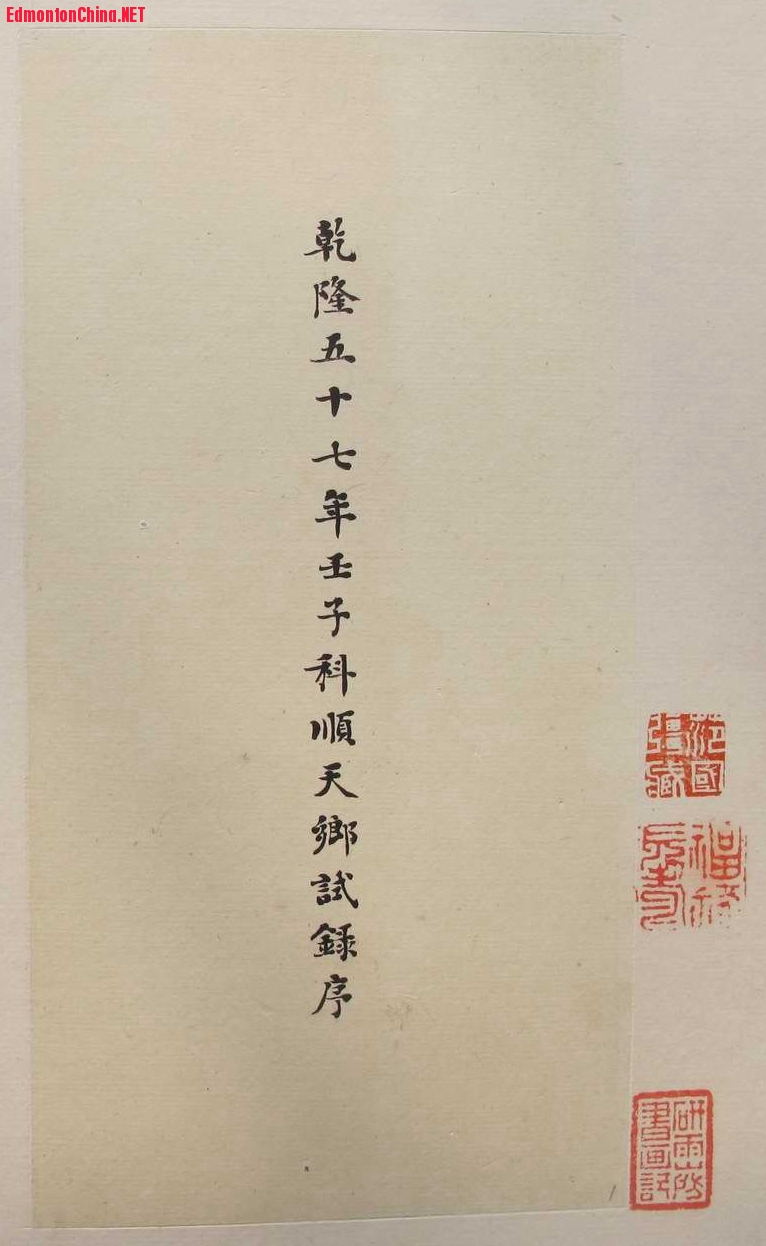 EdmontonChina.NET
乾隆五十七年壬子科順天鄉試録序
范國強藏